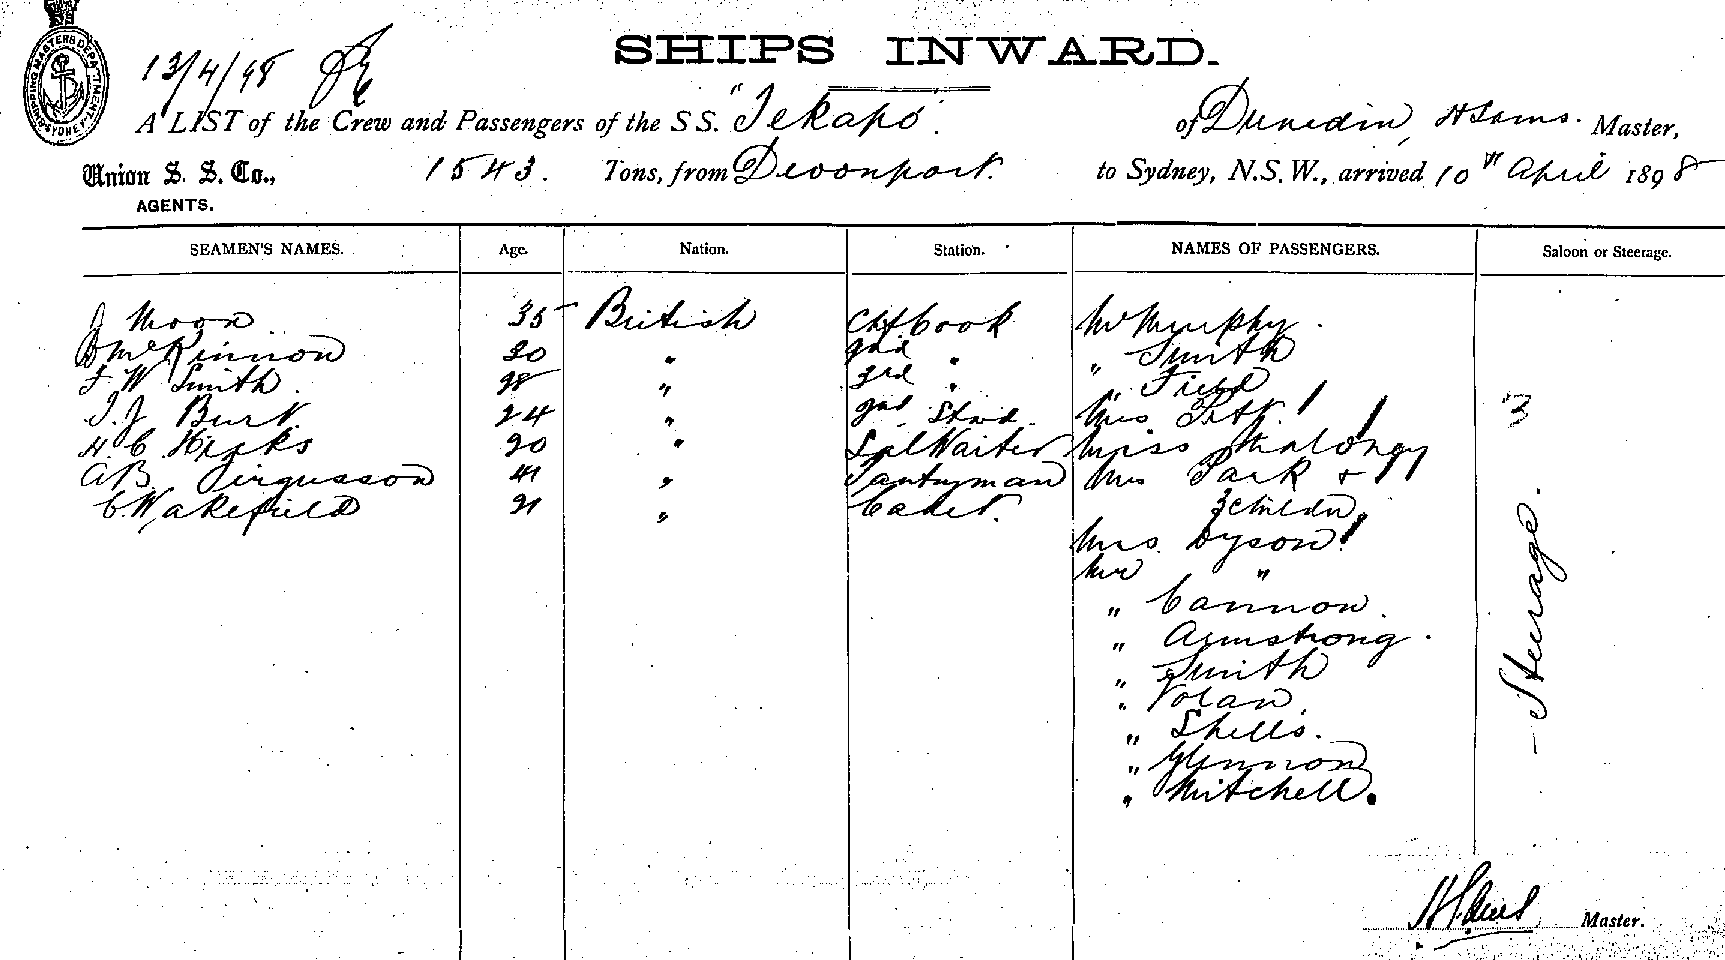 SHIPPING MASTERS DEPARTMENT
SYDNEY
13/4/98
SHIPS INWARD.
A LIST of the Crew and Passengers of the SS. "Tekapo" of Dunedin, Master,
Union S. S. Co., 1543. Tons, from Devonport. to Sydney, N.S.W., arrived 10th April 1898
AGENTS.
SEAMEN'S NAMES. Age. Nation. Station. NAMES OF PASSENGERS. Saloon or Steerage.
J Moon 35 British Chf Cook Mr Murphy.
D McKinnon 20 " 2nd " " Smith
F W Smith 28 " 3rd " " Field
T. J. Burt. 24 " 2nd Stwd. Mrs 3
H C Hicks 20 " Waiter Miss Malongy
A B Fergusson " Pantryman Mrs Park &
C. Wakefield 21 " Cadet. 3 children
Mrs. Dyson
Mr "
" Cannon.
" Armstrong.
" Smith
" Nolan
" Shells.
" Glennon
" Mitchell.
- Steerage.
Master.